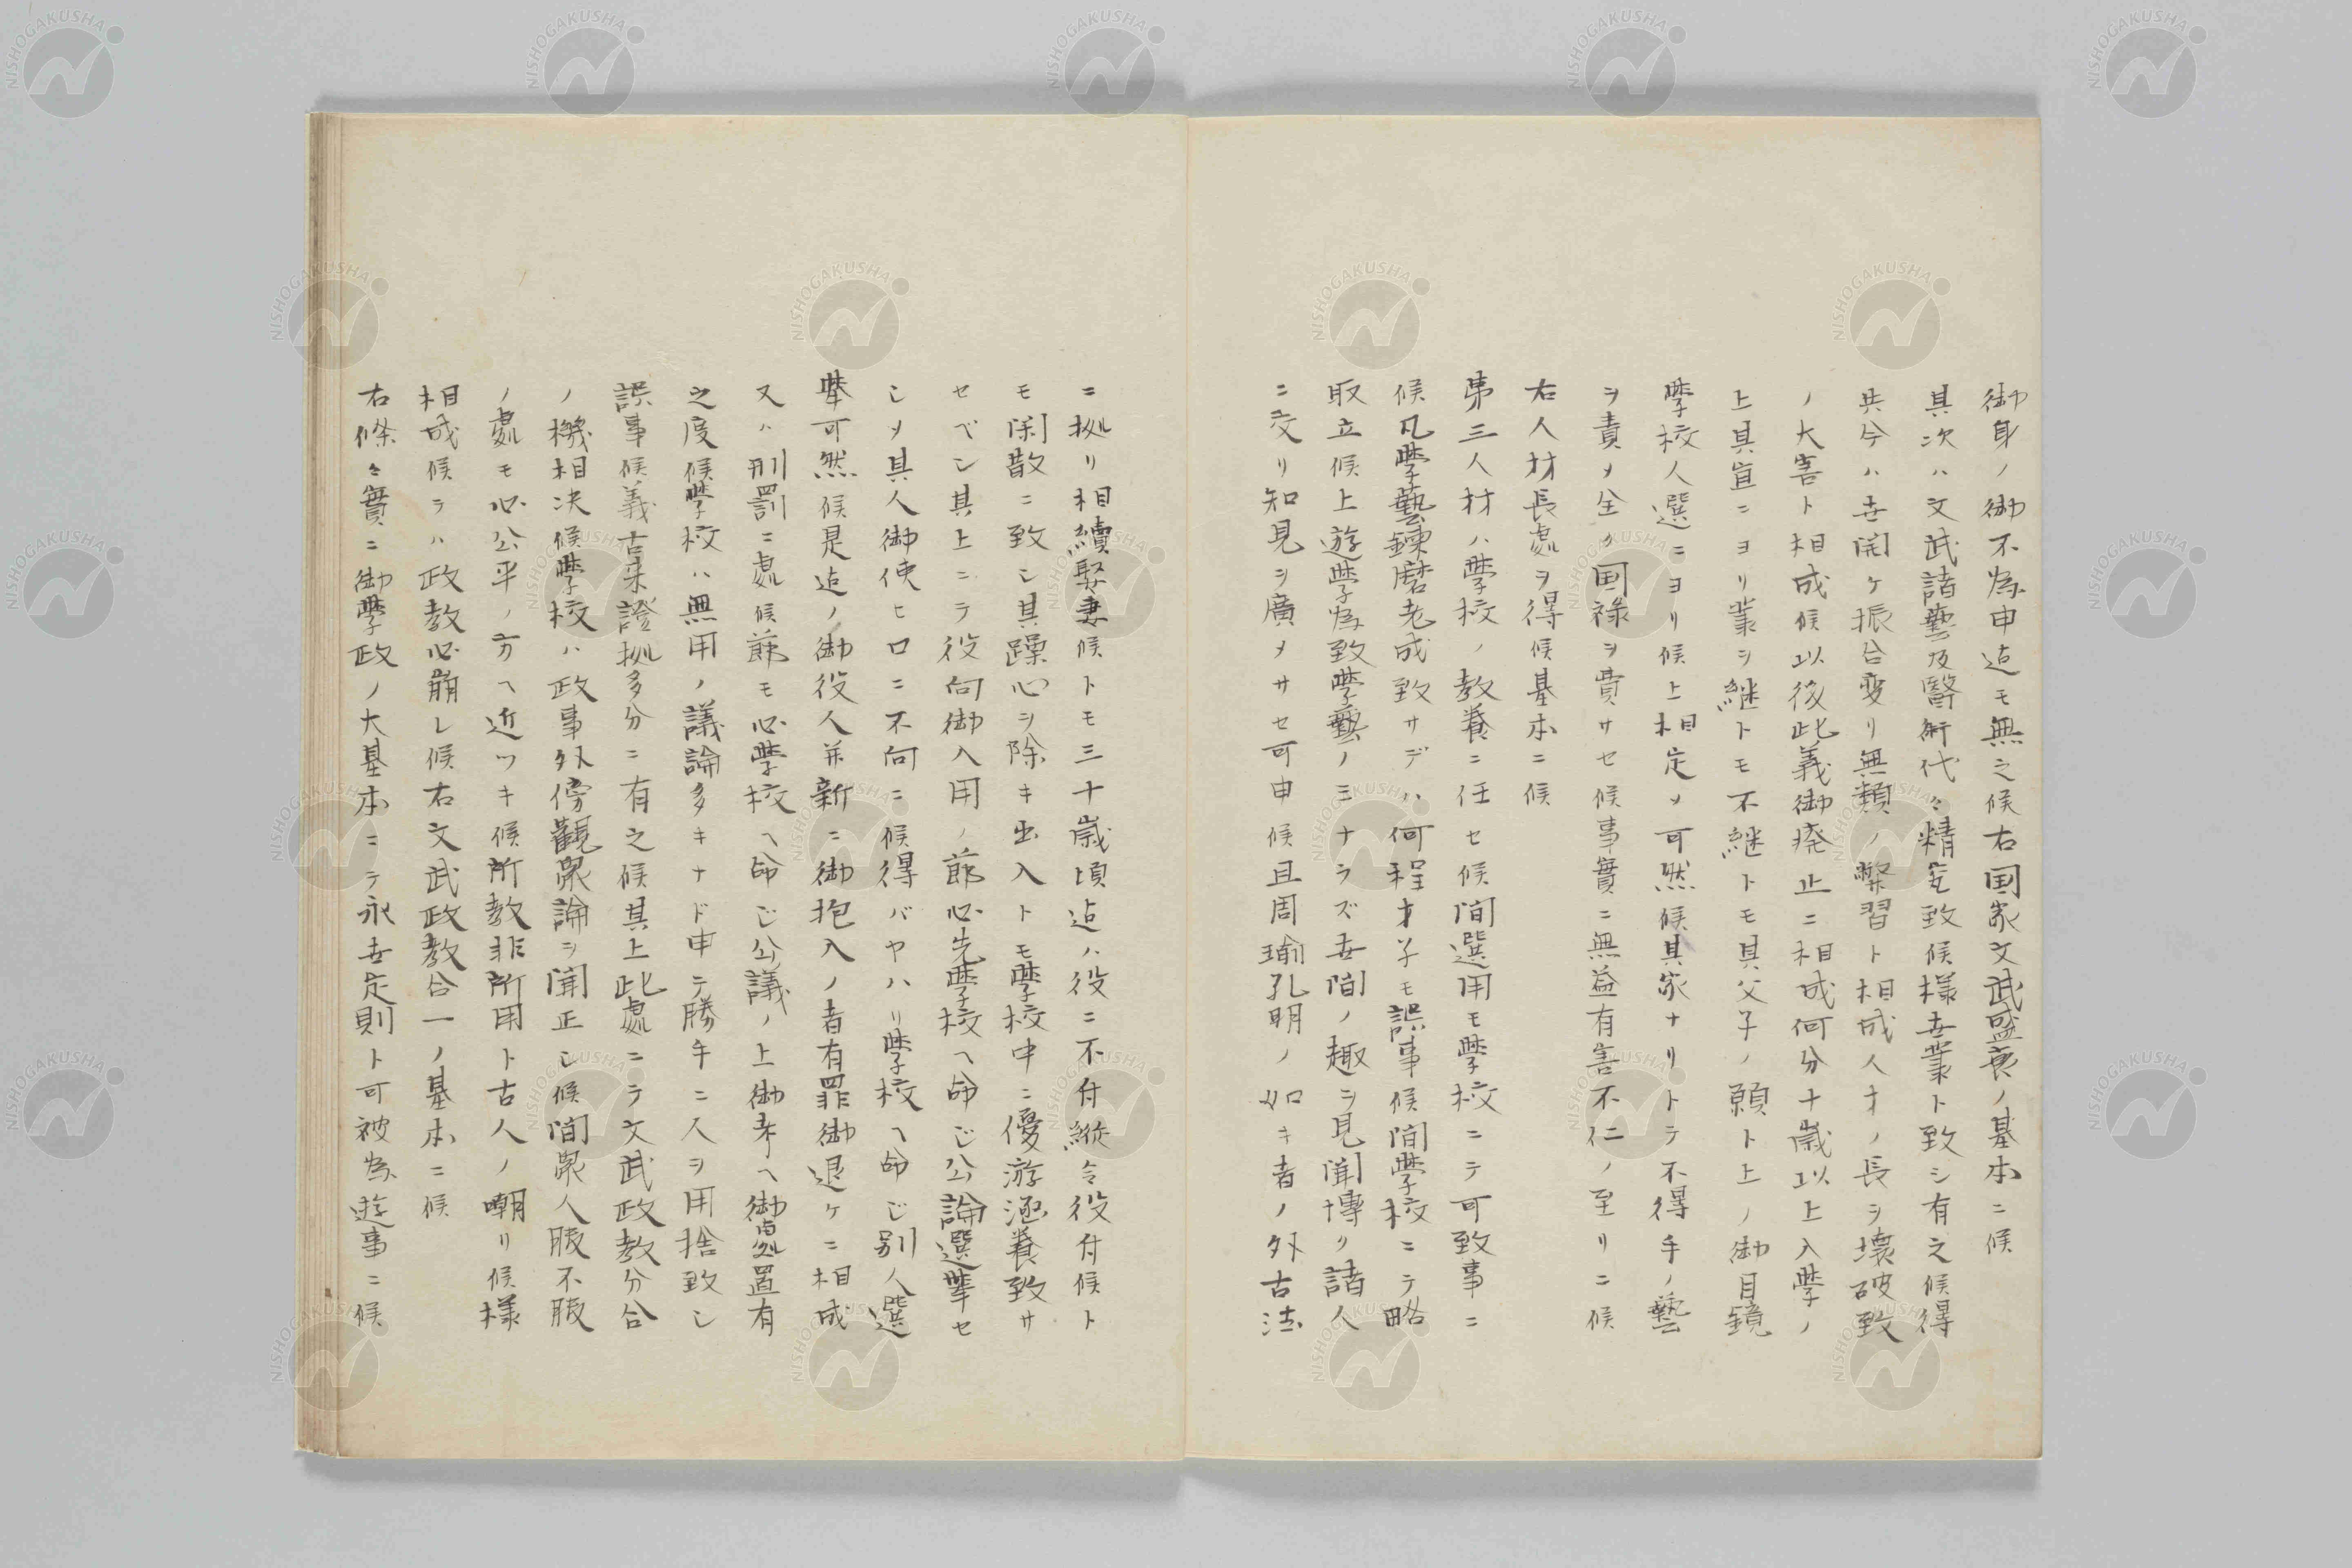 御身ノ御不為申迄モ無之候右国家文武盛衰ノ基本ニ候
其次ハ文武諸藝及醫術代々精究致候様世業ト致シ有之候得
共今ハ世開ケ振合変リ無類ノ弊習ト相成人才ノ長ヲ壊破致
ノ大害ト相成候以後此義御廃止ニ相成何分十歳以上入學ノ
上其宣ニヨリ業ヲ継トモ不継トモ其父子ノ願ト上ノ御目鏡
學校人選ニヨリ候上相定メ可然候其家ナリトテ不得手ノ藝
ヲ責メ全ク国禄ヲ費サセ候事實ニ無益有害不仁ノ至リニ候
右人材長處ヲ得候基本ニ候
第三人材ハ學校ノ教養ニ任セ候間選用モ學校ニテ可致事ニ
候凡學藝錬磨老成致サデハ何程才子モ誤事候間學校ニテ略
取立候上遊學為致學藝ノミナラズ世間ノ趣ヲ見聞博ク諸人
ニ交リ知見ヲ廣メサセ可申候且周瑜孔明ノ如キ者ノ外古法
ニ拠リ相續娶妻候トモ三十歳頃迄ハ役ニ不付縦令役付候ト
モ閑散ニ致シ其躁心ヲ除キ出入トモ學校中ニ優游涵養致サ
セベシ其上ニテ役向御入用ノ節心先學校ヘ命ジ公論選擧セ
シメ其人御使ヒ口ニ不向ニ候得バヤハリ學校ヘ命ジ別人選
擧可然候是迄ノ御役人并新ニ御抱入ノ者有罪御退ケニ相成
又ハ刑罰ニ處候節モ心學校ヘ命ジ公議ノ上御聿ヘ御處置有
之度候學校ハ無用ノ議論多キナド申テ勝手ニ人ヲ用捨致シ
誤事候義古来證拠多分ニ有之候其上此處ニテ文武政教分合
ノ機相决候學校ハ政事外傍觀衆論ヲ聞正シ候間衆人服不服
ノ處モ心公平ノ方ヘ近ツキ候所教非所用ト古人ノ嘲リ候様
相成候テハ政教心崩レ候右文武政教合一ノ基本ニ候
右條々實ニ御學政ノ大基本ニテ永世定則ト可被為遊事ニ候
NISHOGAKUSHA